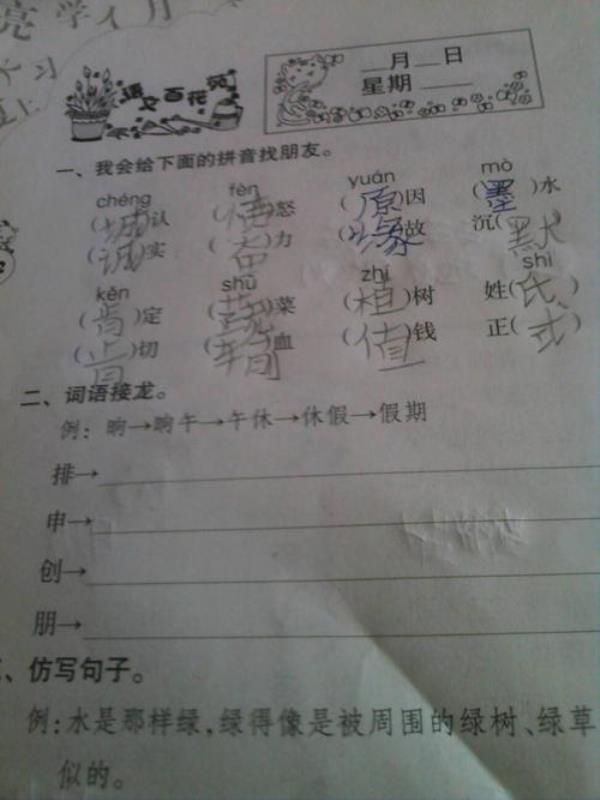 语文百花苑
__月__日
星期____
一、我会给下面的拼音找朋友。
chéng fèn yuán mò
(城)认 (愤)怒 (原)因 (墨)水
(诚)实 (奋)力 (缘)故 沉(默)
kěn shū zhí shì
(肯)定 (蔬)菜 (植)树 姓(氏)
(肯)切 (输)血 (值)钱 正(式)
二、词语接龙。
例：晌→晌午→午休→休假→假期
排→
申→
创→
朋→
、仿写句子。
例：水是那样绿，绿得像是被周围的绿树、绿草
似的。